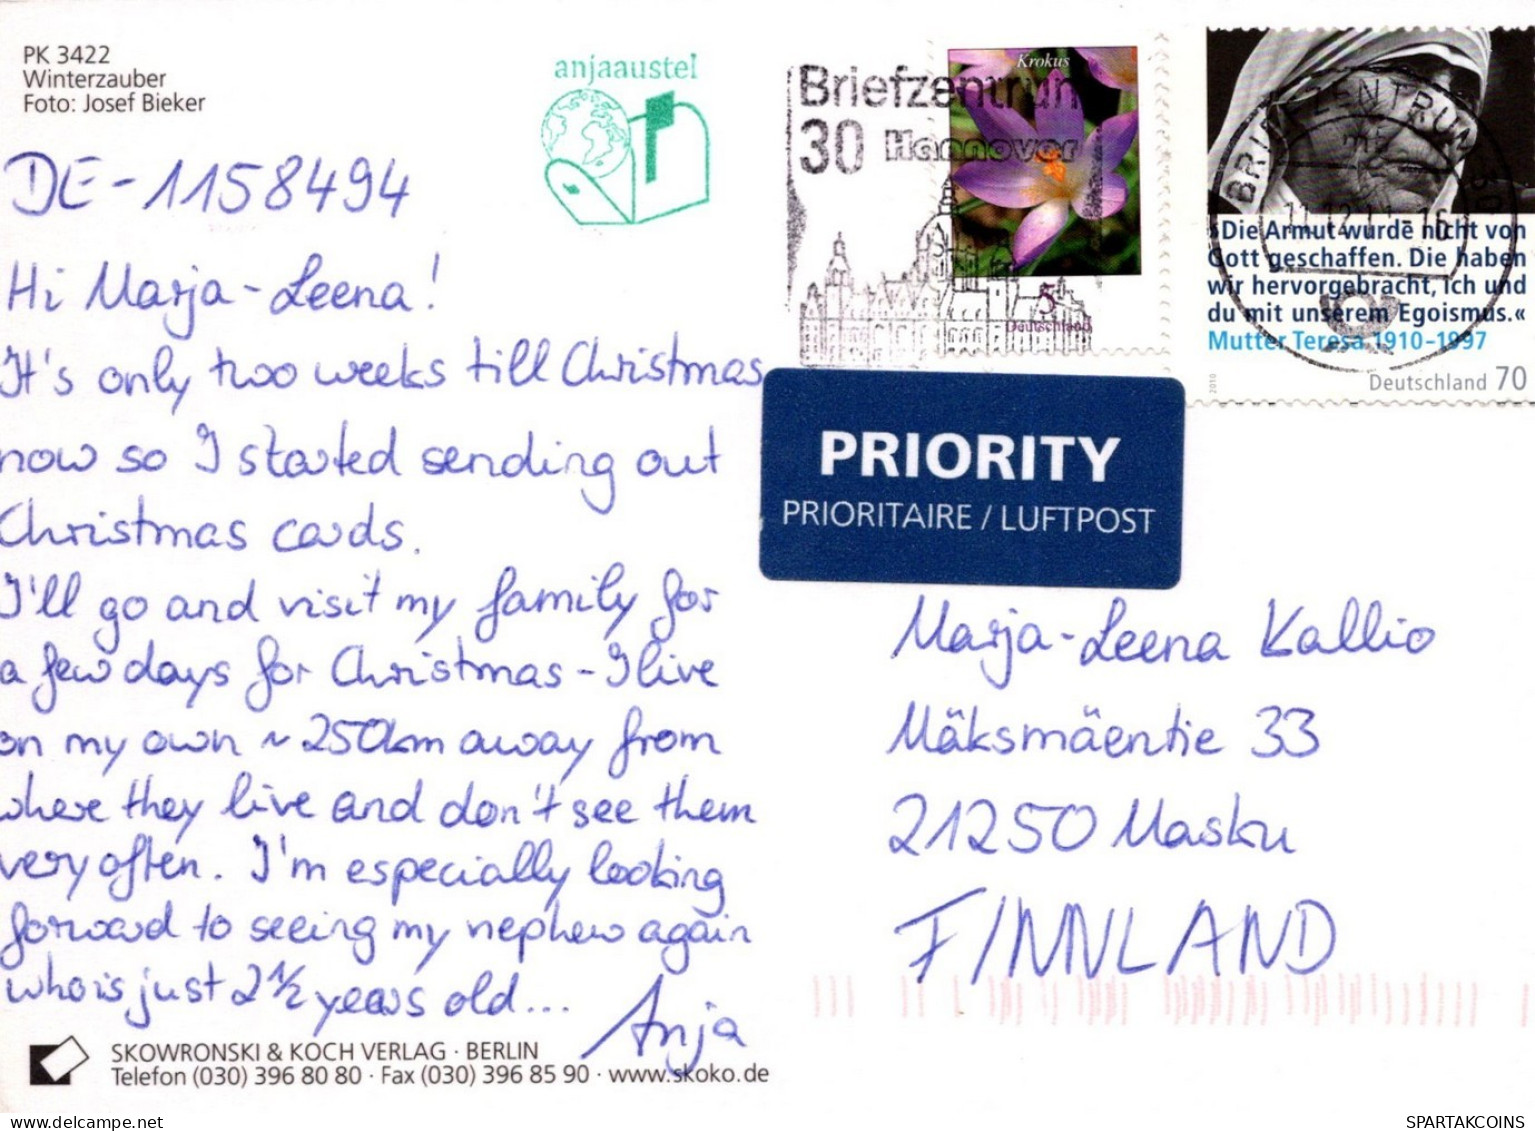 PK 3422
Winterzauber
Foto: Josef Bieker
anjaaustel
DE-1158494
Hi Marja-Leena!
It's only two weeks till Christmas
now so I started sending out
Christmas cards.
I'll go and visit my family for
a few days for Christmas - I live
on my own ~ 250km away from
where they live and don't see them
very often. I'm especially looking
forward to seeing my nephew again
who is just 2 1/2 years old...
Anja
SKOWRONSKI & KOCH VERLAG · BERLIN
Telefon (030) 396 80 80 · Fax (030) 396 85 90 · www.skoko.de
Briefzentrum
30 Hannover
Krokus
5
Deutschland
BRIEFZENTRUM 30
»Die Armut wurde nicht von
Gott geschaffen. Die haben
wir hervorgebracht, ich und
du mit unserem Egoismus.«
Mutter Teresa 1910–1997
2010
Deutschland 70
PRIORITY
PRIORITAIRE / LUFTPOST
Marja-Leena Kallio
Mäksmäentie 33
21250 Masku
FINNLAND
SPARTAKCOINS